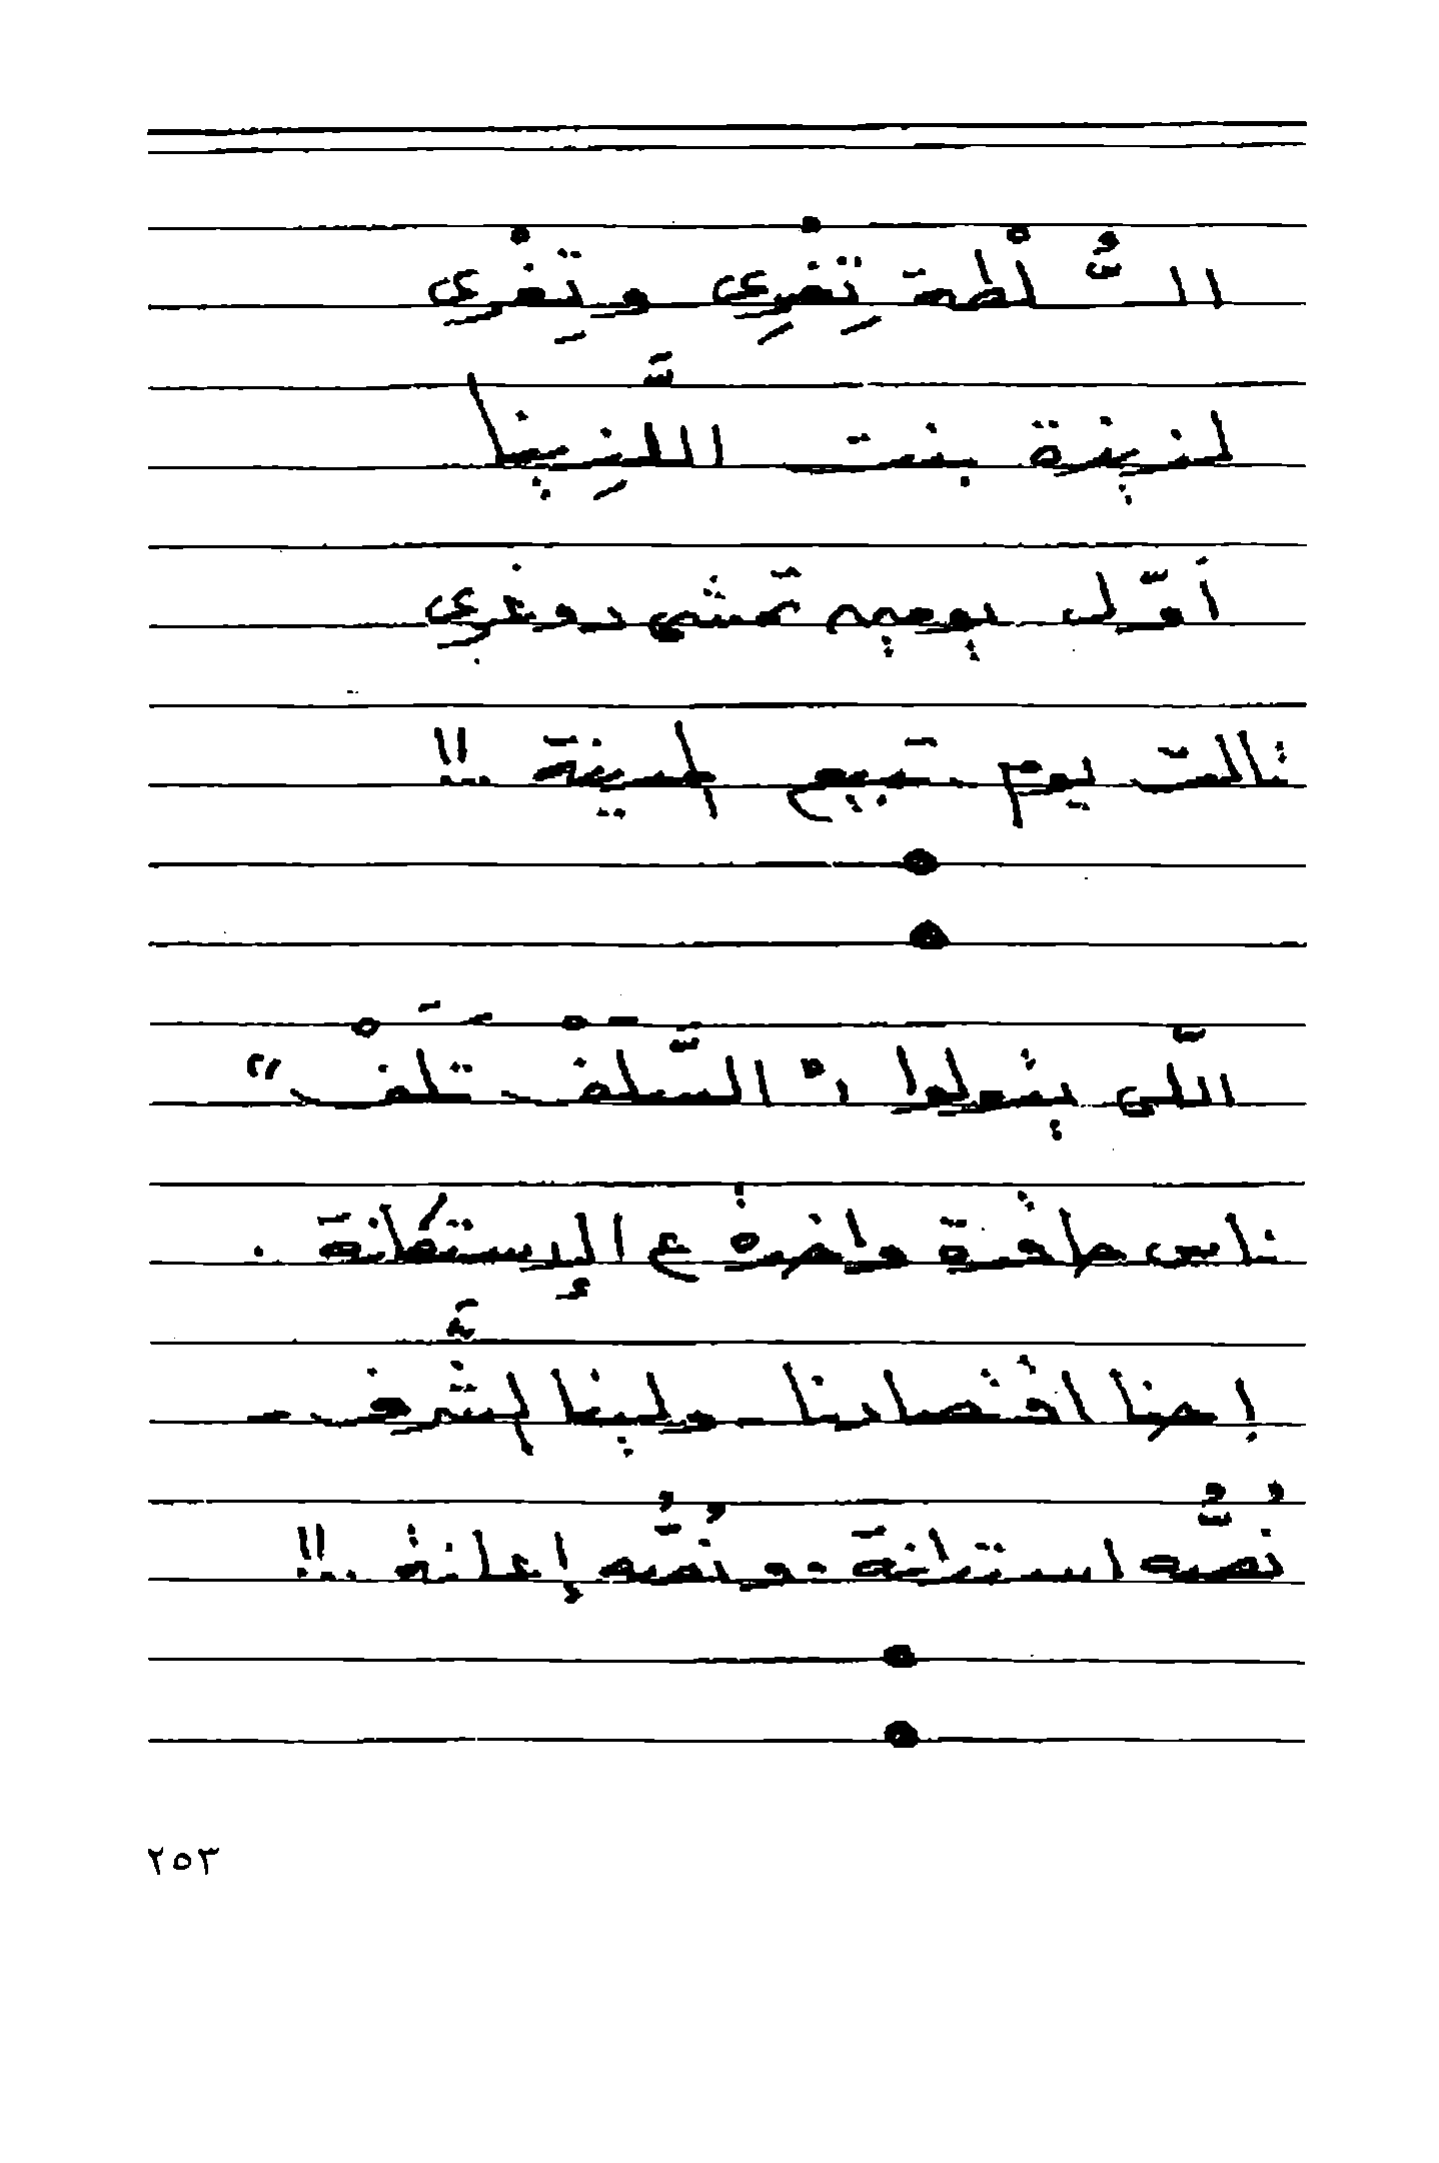 السُّلْطة تِغْرِى وتِغْرِى
لزيزة بنت اللَّزِينا
أوّل يومين تمشى دوغرى
ثالت يوم تبيع المينة ..!!
اللّى يقولوا : " السَّلَفْ تَلَفْ "
ناس حافرة واخدة ع الإستكانة .
إحنا اقتصادنا - ولينا الشَّرف -
نُصُّه استدانة .. ونُصُّه إعانة ..!!
٢٥٣